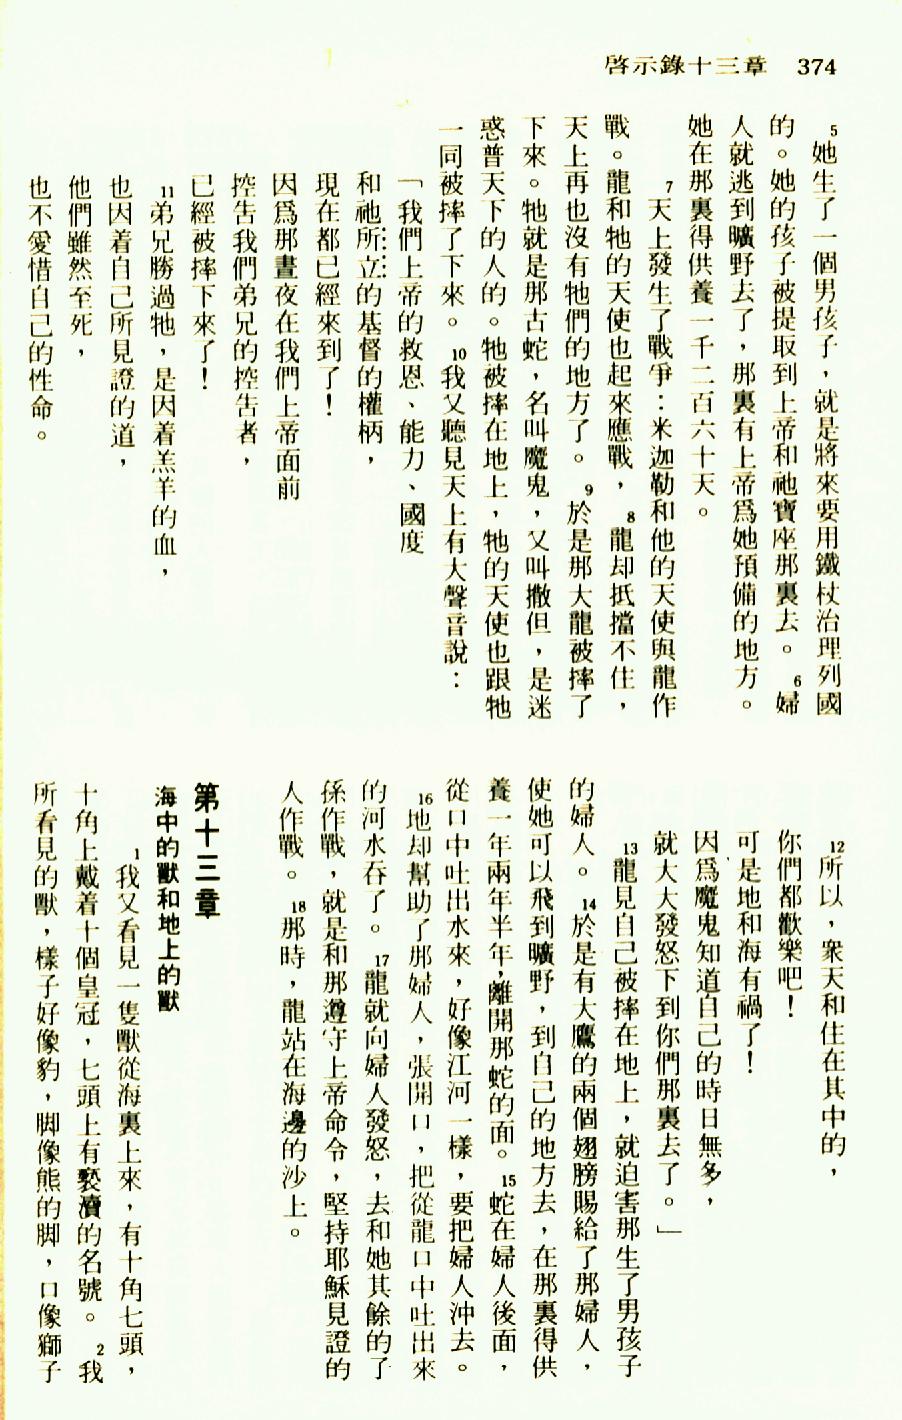 啓示錄十三章 374
5她生了一個男孩子，就是將來要用鐵杖治理列國
的。她的孩子被提取到上帝和祂寶座那裏去。6婦
人就逃到曠野去了，那裏有上帝爲她預備的地方。
她在那裏得供養一千二百六十天。
7天上發生了戰爭：米迦勒和他的天使與龍作
戰。龍和牠的天使也起來應戰，8龍却抵擋不住，
天上再也沒有牠們的地方了。9於是那大龍被摔了
下來。牠就是那古蛇，名叫魔鬼，又叫撒但，是迷
惑普天下的人的。牠被摔在地上，牠的天使也跟牠
一同被摔了下來。10我又聽見天上有大聲音說：
「我們上帝的救恩、能力、國度
和祂所立的基督的權柄，
現在都已經來到了！
因爲那晝夜在我們上帝面前
控吿我們弟兄的控吿者，
已經被摔下來了！
11弟兄勝過牠，是因着羔羊的血，
也因着自己所見證的道，
他們雖然至死，
也不愛惜自己的性命。
12所以，衆天和住在其中的，
你們都歡樂吧！
可是地和海有禍了！
因爲魔鬼知道自己的時日無多，
就大大發怒下到你們那裏去了。」
13龍見自己被摔在地上，就迫害那生了男孩子
的婦人。14於是有大鷹的兩個翅膀賜給了那婦人，
使她可以飛到曠野，到自己的地方去，在那裏得供
養一年兩年半年，離開那蛇的面。15蛇在婦人後面，
從口中吐出水來，好像江河一樣，要把婦人沖去。
16地却幫助了那婦人，張開口，把從龍口中吐出來
的河水吞了。17龍就向婦人發怒，去和她其餘的子
孫作戰，就是和那遵守上帝命令，堅持耶穌見證的
人作戰。18那時，龍站在海邊的沙上。
第十三章
海中的獸和地上的獸
1我又看見一隻獸從海裏上來，有十角七頭，
十角上戴着十個皇冠，七頭上有褻瀆的名號。2我
所看見的獸，樣子好像豹，脚像熊的脚，口像獅子